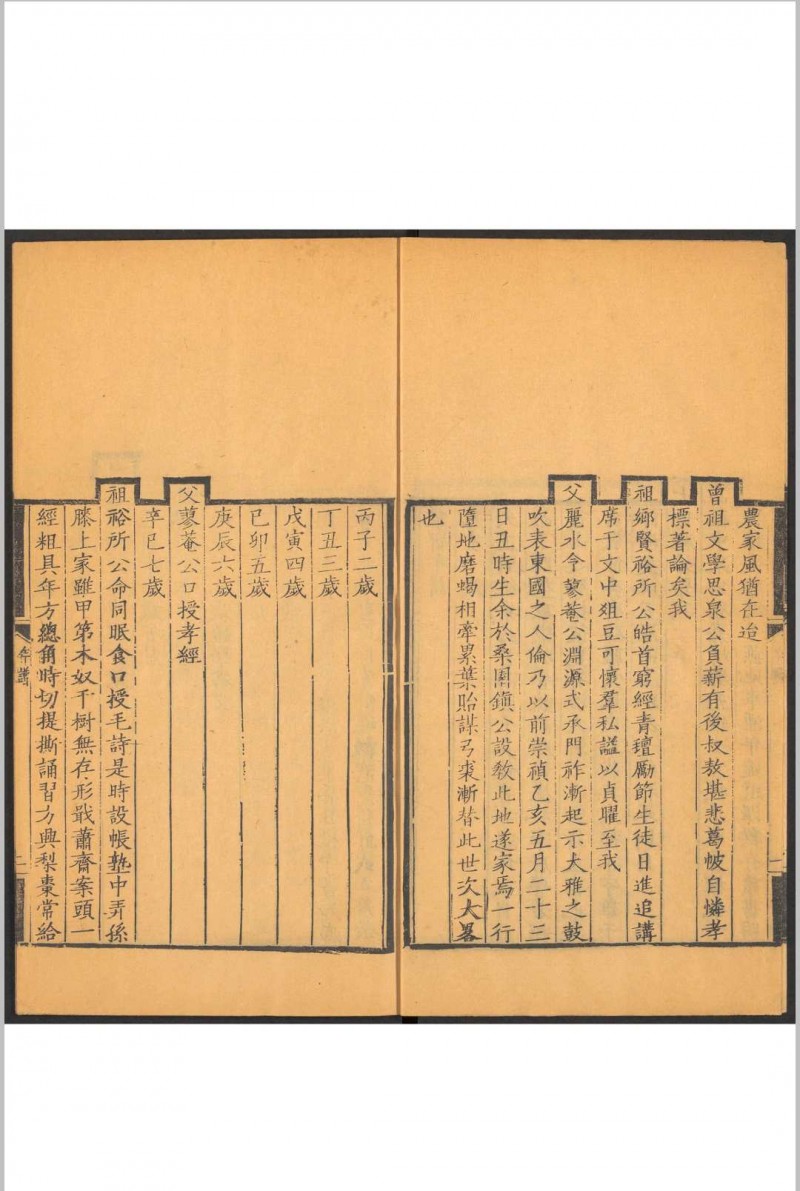 農家風猶在迨
曾祖文學思泉公負薪有後叔敖堪悲葛帔自憐孝
標著論矣我
祖鄉賢裕所公皓首窮經青氊勵節生徒日進追講
席于文中俎豆可懷羣私謚以貞曜至我
父麗水令蓼菴公淵源式承門祚漸起示大雅之鼓
吹表東國之人倫乃以前崇禎乙亥五月二十三
日丑時生余於桑園鎮公設教此地遂家焉一行
墮地磨蝎相牽累葉貽謀弓裘漸替此世次大畧
也
丙子二歲
丁丑三歲
戊寅四歲
己卯五歲
庚辰六歲
父蓼菴公口授孝經
辛巳七歲
祖裕所公命同眠食口授毛詩是時設帳塾中弄孫
膝上家雖甲第木奴千樹無存形戢蕭齋案頭一
經粗具年方總角時切提撕誦習方興梨棗常給
年譜
二